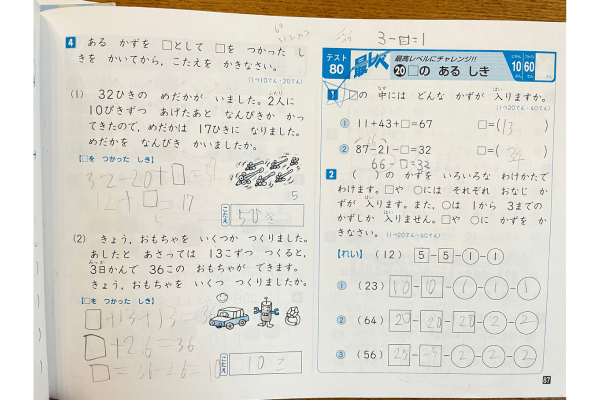 4 ある かずを □として □を つかった し
きを かいてから、こたえを かきなさい。
(1つ10てん・20てん)
(1) 32ひきの めだかが いました。2人に
10ぴきずつ あげたあと なんびきか かっ
てきたので、めだかは 17ひきに なりました。
めだかを なんびき かいましたか。
【□を つかった しき】
32-20+□=
12+□=17
こたえ 5ひき
5
(2) きょう、おもちゃを いくつか つくりました。
あしたと あさっては 13こずつ つくると、
3日かんで 36この おもちゃが できます。
きょう、おもちゃを いくつ つくりましたか。
【□を つかった しき】
□+13+13=36
□+26=36
□=36-26=10
こたえ 10こ
3-□=1
テスト 80 最レベ 最高レベルにチャレンジ!!
20 □の ある しき
じかん 10ぷん ごうかく 60てん てん
1 □の 中には どんな かずが 入りますか。
(1つ20てん・40てん)
① 11+43+□=67 □=(13)
② 87-21-□=32 □=(34)
66-□=32
2 ( )の かずを いろいろな わけかたで
わけます。□や ○には それぞれ おなじ か
ずが 入ります。また、○は 1から 3までの
かずしか 入りません。□や ○に かずを か
きなさい。(1つ20てん・60てん)
【れい】 (12) 5-5-1-1
① (23) 10-10-1-1-1
② (64) 20-20-20-2-2
③ (56) 25-25-2-2-2
87